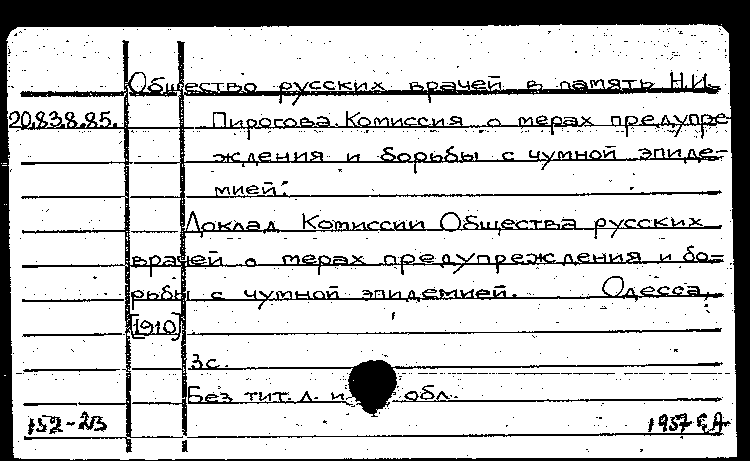 Общество русских врачей в память Н.И.
20.83.8.85. Пирогова. Комиссия о мерах предупре-
ждения и борьбы с чумной эпиде-
мией:
Доклад Комиссии Общества русских
врачей о мерах предупреждения и бо=
рьбы с чумной эпидемией. Одесса,
[1910]
3с.
Без тит. л. и обл.
152-2В 1957